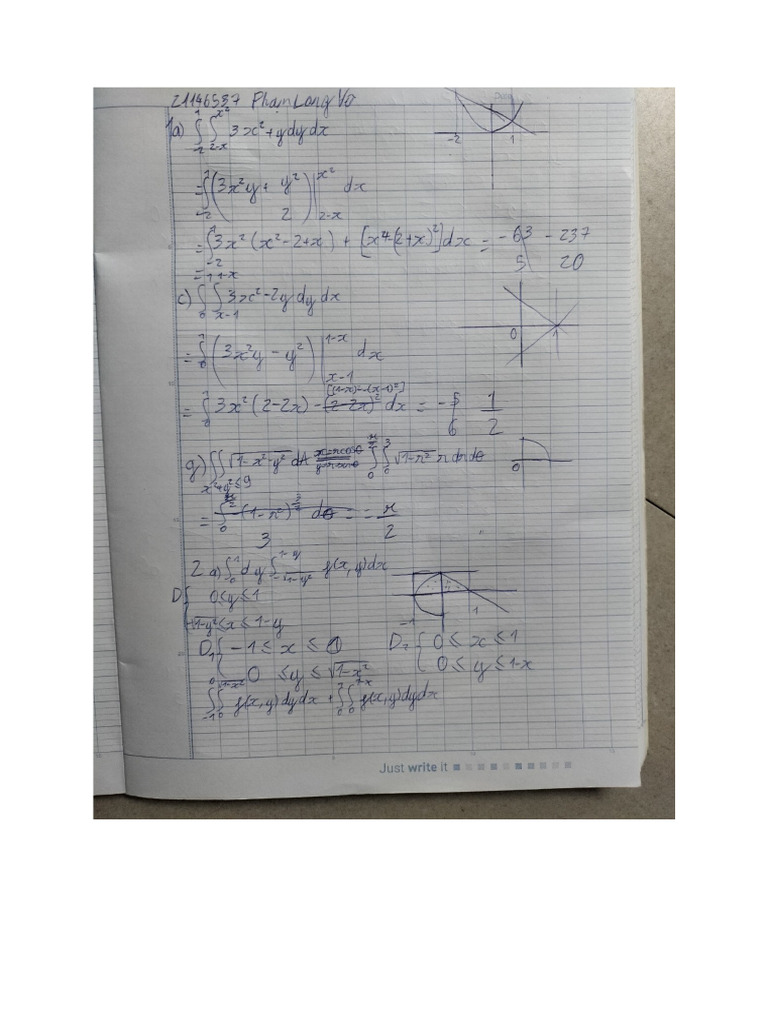 21146537 Phạm Long Vỡ
1a) ∫_{-2}^{1} ∫_{2-x}^{x²} 3x²+y dy dx
-2 1
= ∫_{-2}^{1} (3x²y + y²/2) |_{2-x}^{x²} dx
= ∫_{-2}^{1} 3x²(x²-2+x) + [x⁴-(2+x)²] dx = -63/5 -237/20
c) ∫_{0}^{1} ∫_{x-1}^{1-x} 3x²-2y dy dx
0 1
= ∫_{0}^{1} (3x²y - y²) |_{x-1}^{1-x} dx
= ∫_{0}^{1} 3x²(2-2x) - dx = -5/6 1/2
g) ∬_{x²+y²≤9} √1-x²-y² dA ∫_{0} ∫_{0}^{3} √1-r² r dr dθ
0
= ∫_{0} (1-r²)^{3/2}/3 dθ = -π/2
2 a) ∫_{0}^{1} dy ∫_{-√1-y²}^{1-y} f(x,y)dx
-1 1
D{ 0≤y≤1
-√1-y² ≤ x ≤ 1-y
D₁{ -1 ≤ x ≤ 0 D₂{ 0 ≤ x ≤ 1
0 ≤ y ≤ √1-x² 0 ≤ y ≤ 1-x
∫_{-1}^{0} ∫_{0}^{√1-x²} f(x,y)dydx + ∫_{0}^{1} ∫_{0}^{1-x} f(x,y)dydx
Just write it